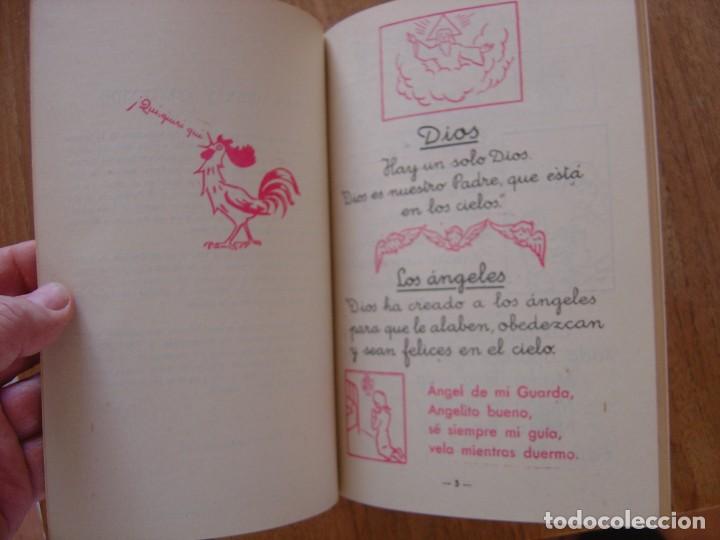 ¡Quiquiri qui
Dios
Hay un solo Dios.
Dios es nuestro Padre, que está
en los cielos."
Los ángeles
Dios ha creado a los ángeles
para que le alaben, obedezcan
y sean felices en el cielo.
Ángel de mi Guarda,
Angelito bueno,
sé siempre mi guía,
vela mientras duermo.
— 3 —
todocoleccion
todocoleccion.net